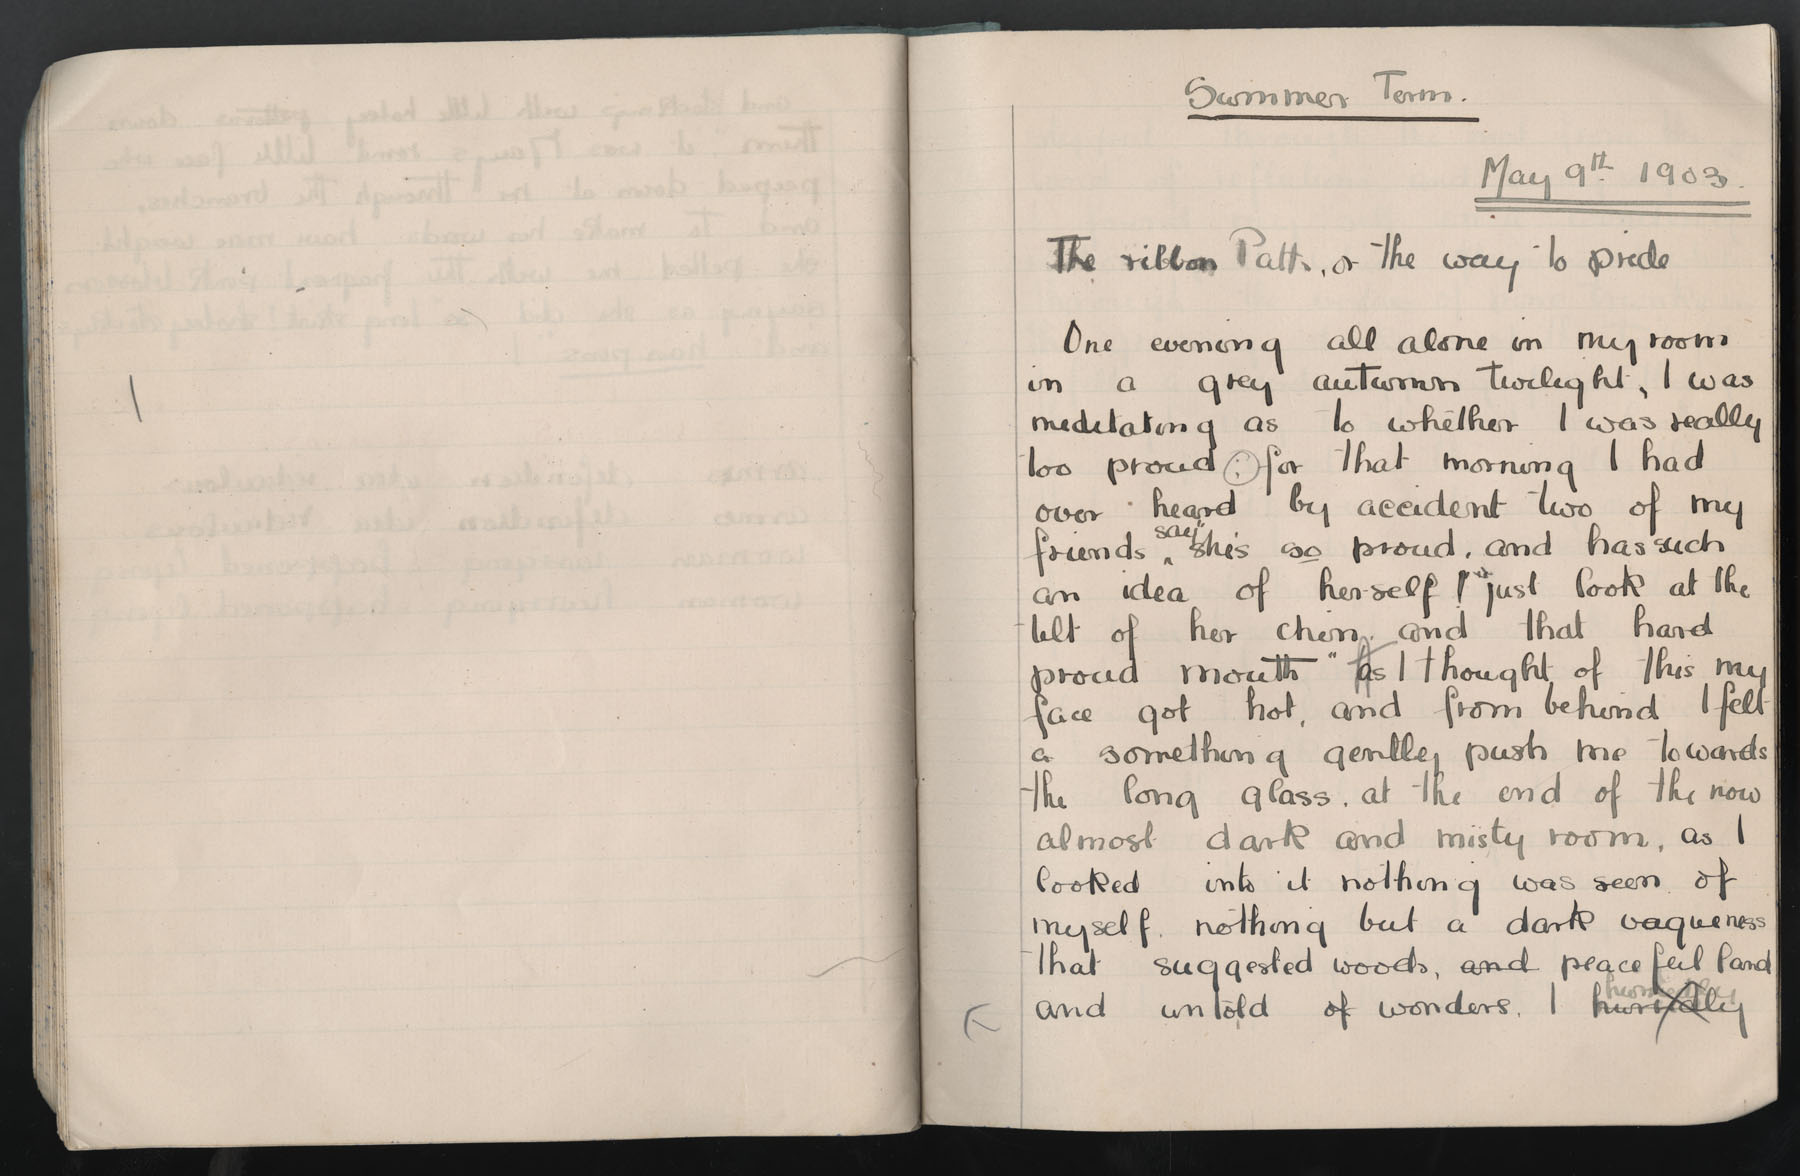 Summer Term.
May 9th 1903.
The ribbon Path, or the way to pride
One evening all alone in my room
in a grey autumn twilight, I was
meditating as to whether I was really
too proud : for that morning I had
over heard by accident two of my
friends say "she's so proud, and has such
an idea of herself! just look at the
tilt of her chin, and that hard
proud mouth" As I thought of this my
face got hot, and from behind I felt
a something gently push me towards
the long glass, at the end of the now
almost dark and misty room, as I
looked into it nothing was seen of
myself, nothing but a dark vagueness
that suggested woods, and peaceful land
and untold of wonders. I hurriedly